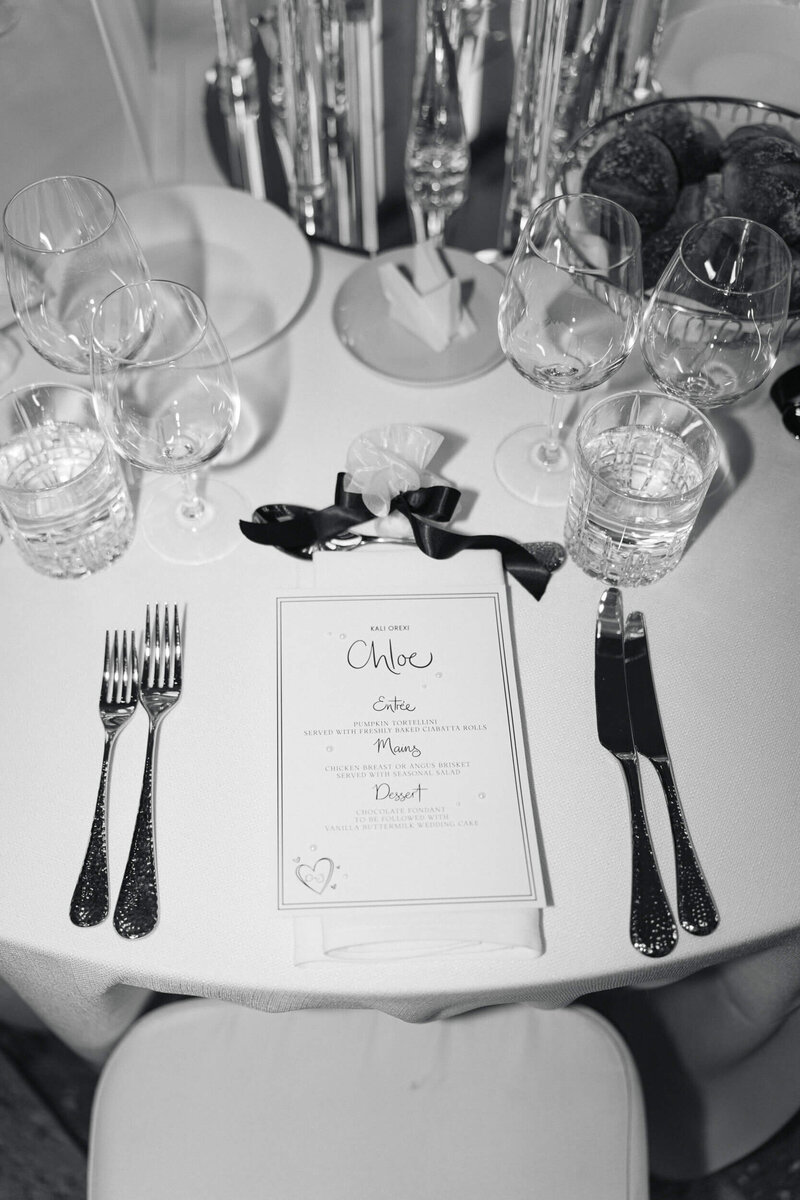 KALI OREXI
Chloe
Entrée
PUMPKIN TORTELLINI
SERVED WITH FRESHLY BAKED CIABATTA ROLLS
Mains
CHICKEN BREAST OR ANGUS BRISKET
SERVED WITH SEASONAL SALAD
Dessert
CHOCOLATE FONDANT
TO BE FOLLOWED WITH
VANILLA BUTTERMILK WEDDING CAKE